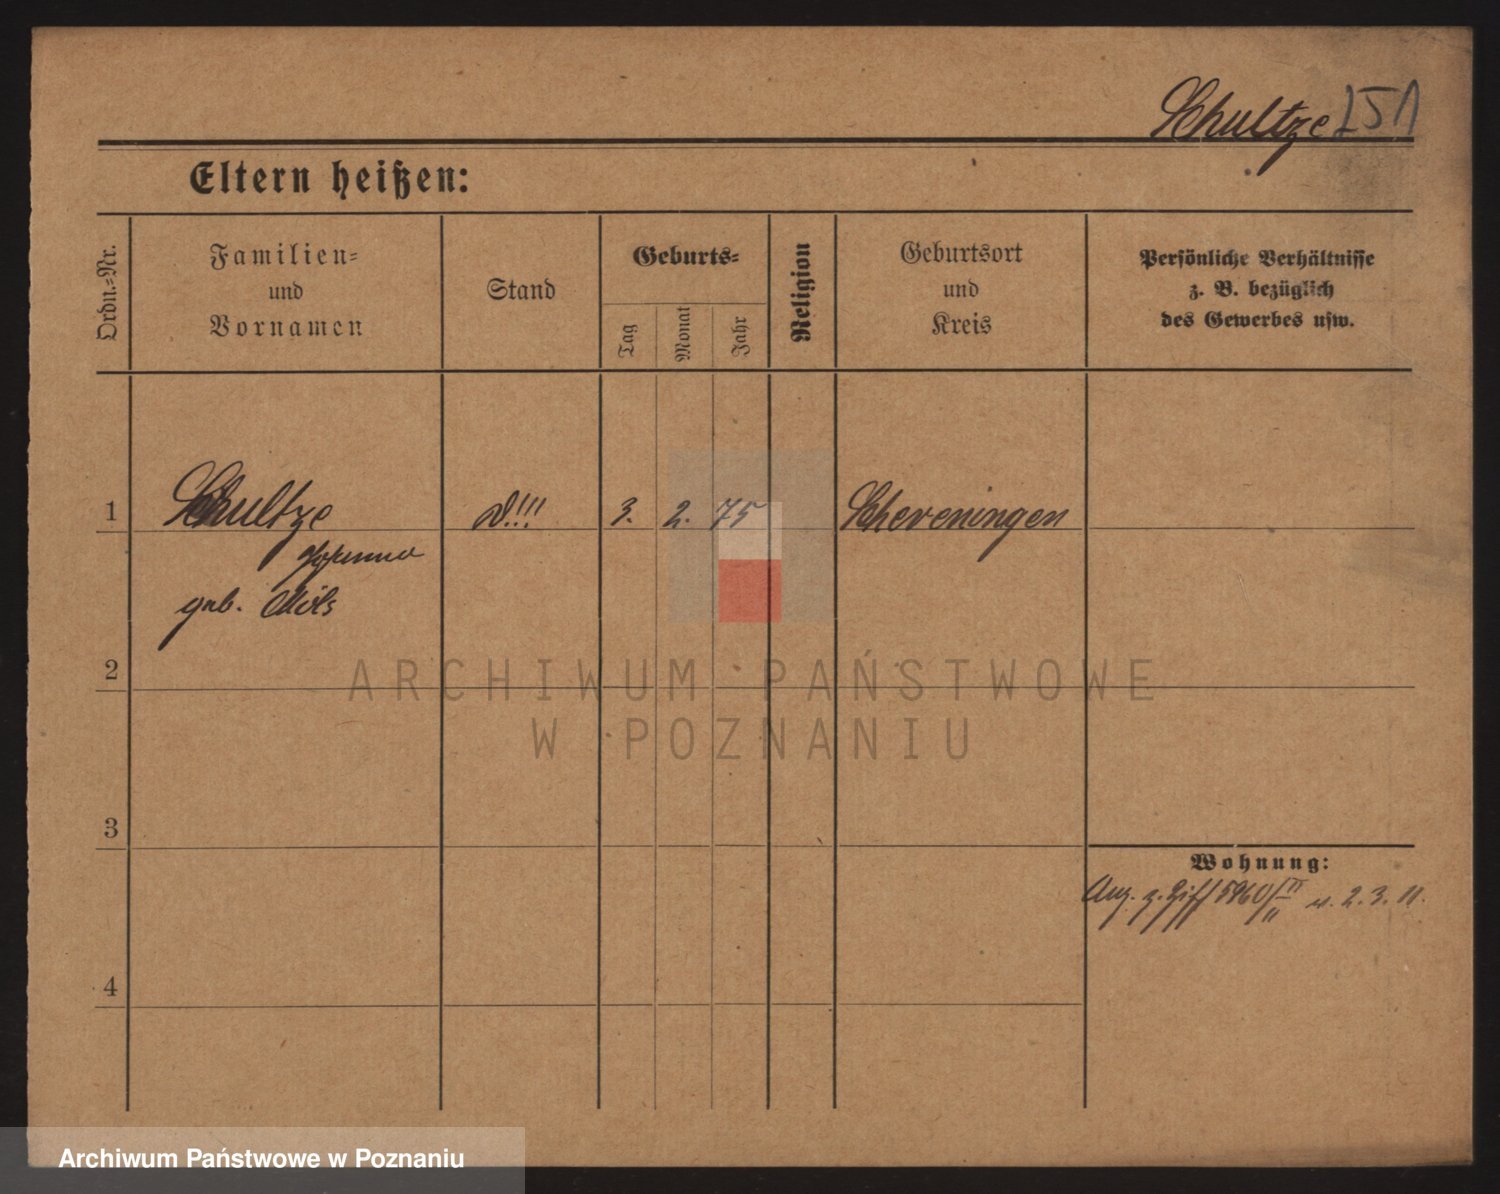 Schultze 251
Eltern heißen:
Ordn.-Nr.
Familien-
und
Vornamen
Stand
Geburts-
Tag
Monat
Jahr
Religion
Geburtsort
und
Kreis
Persönliche Verhältnisse
z. B. bezüglich
des Gewerbes usw.
1
Schultze
3. 2. 75
Scheveningen
Johanna
geb.
2
ARCHIWUM PAŃSTWOWE
W POZNANIU
3
Wohnung:
Anz. z. Ziff 5960/II v. 2. 3. 11.
4
Archiwum Państwowe w Poznaniu